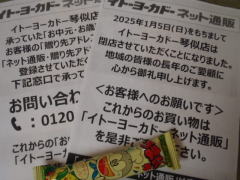 イトーヨーカドー ネット通販
イトーヨーカドー琴似店
承っていた「お中元・お歳
お客様の「贈り先アドレ
「ネット通販・贈り先アド
登録させていただ
下記窓口で承って
お問い合わ
0120
これからの「お
「イトーヨーカ
イトーヨーカドー ネット通販
2025年1月5日(日)をもちまして
イトーヨーカドー琴似店は
閉店させていただくことになりました。
地域の皆様の長年のご愛顧に
心から御礼申し上げます。
<お客様へのお願いです>
これからのお買い物は
「イトーヨーカドーネット通販」
を是非ご